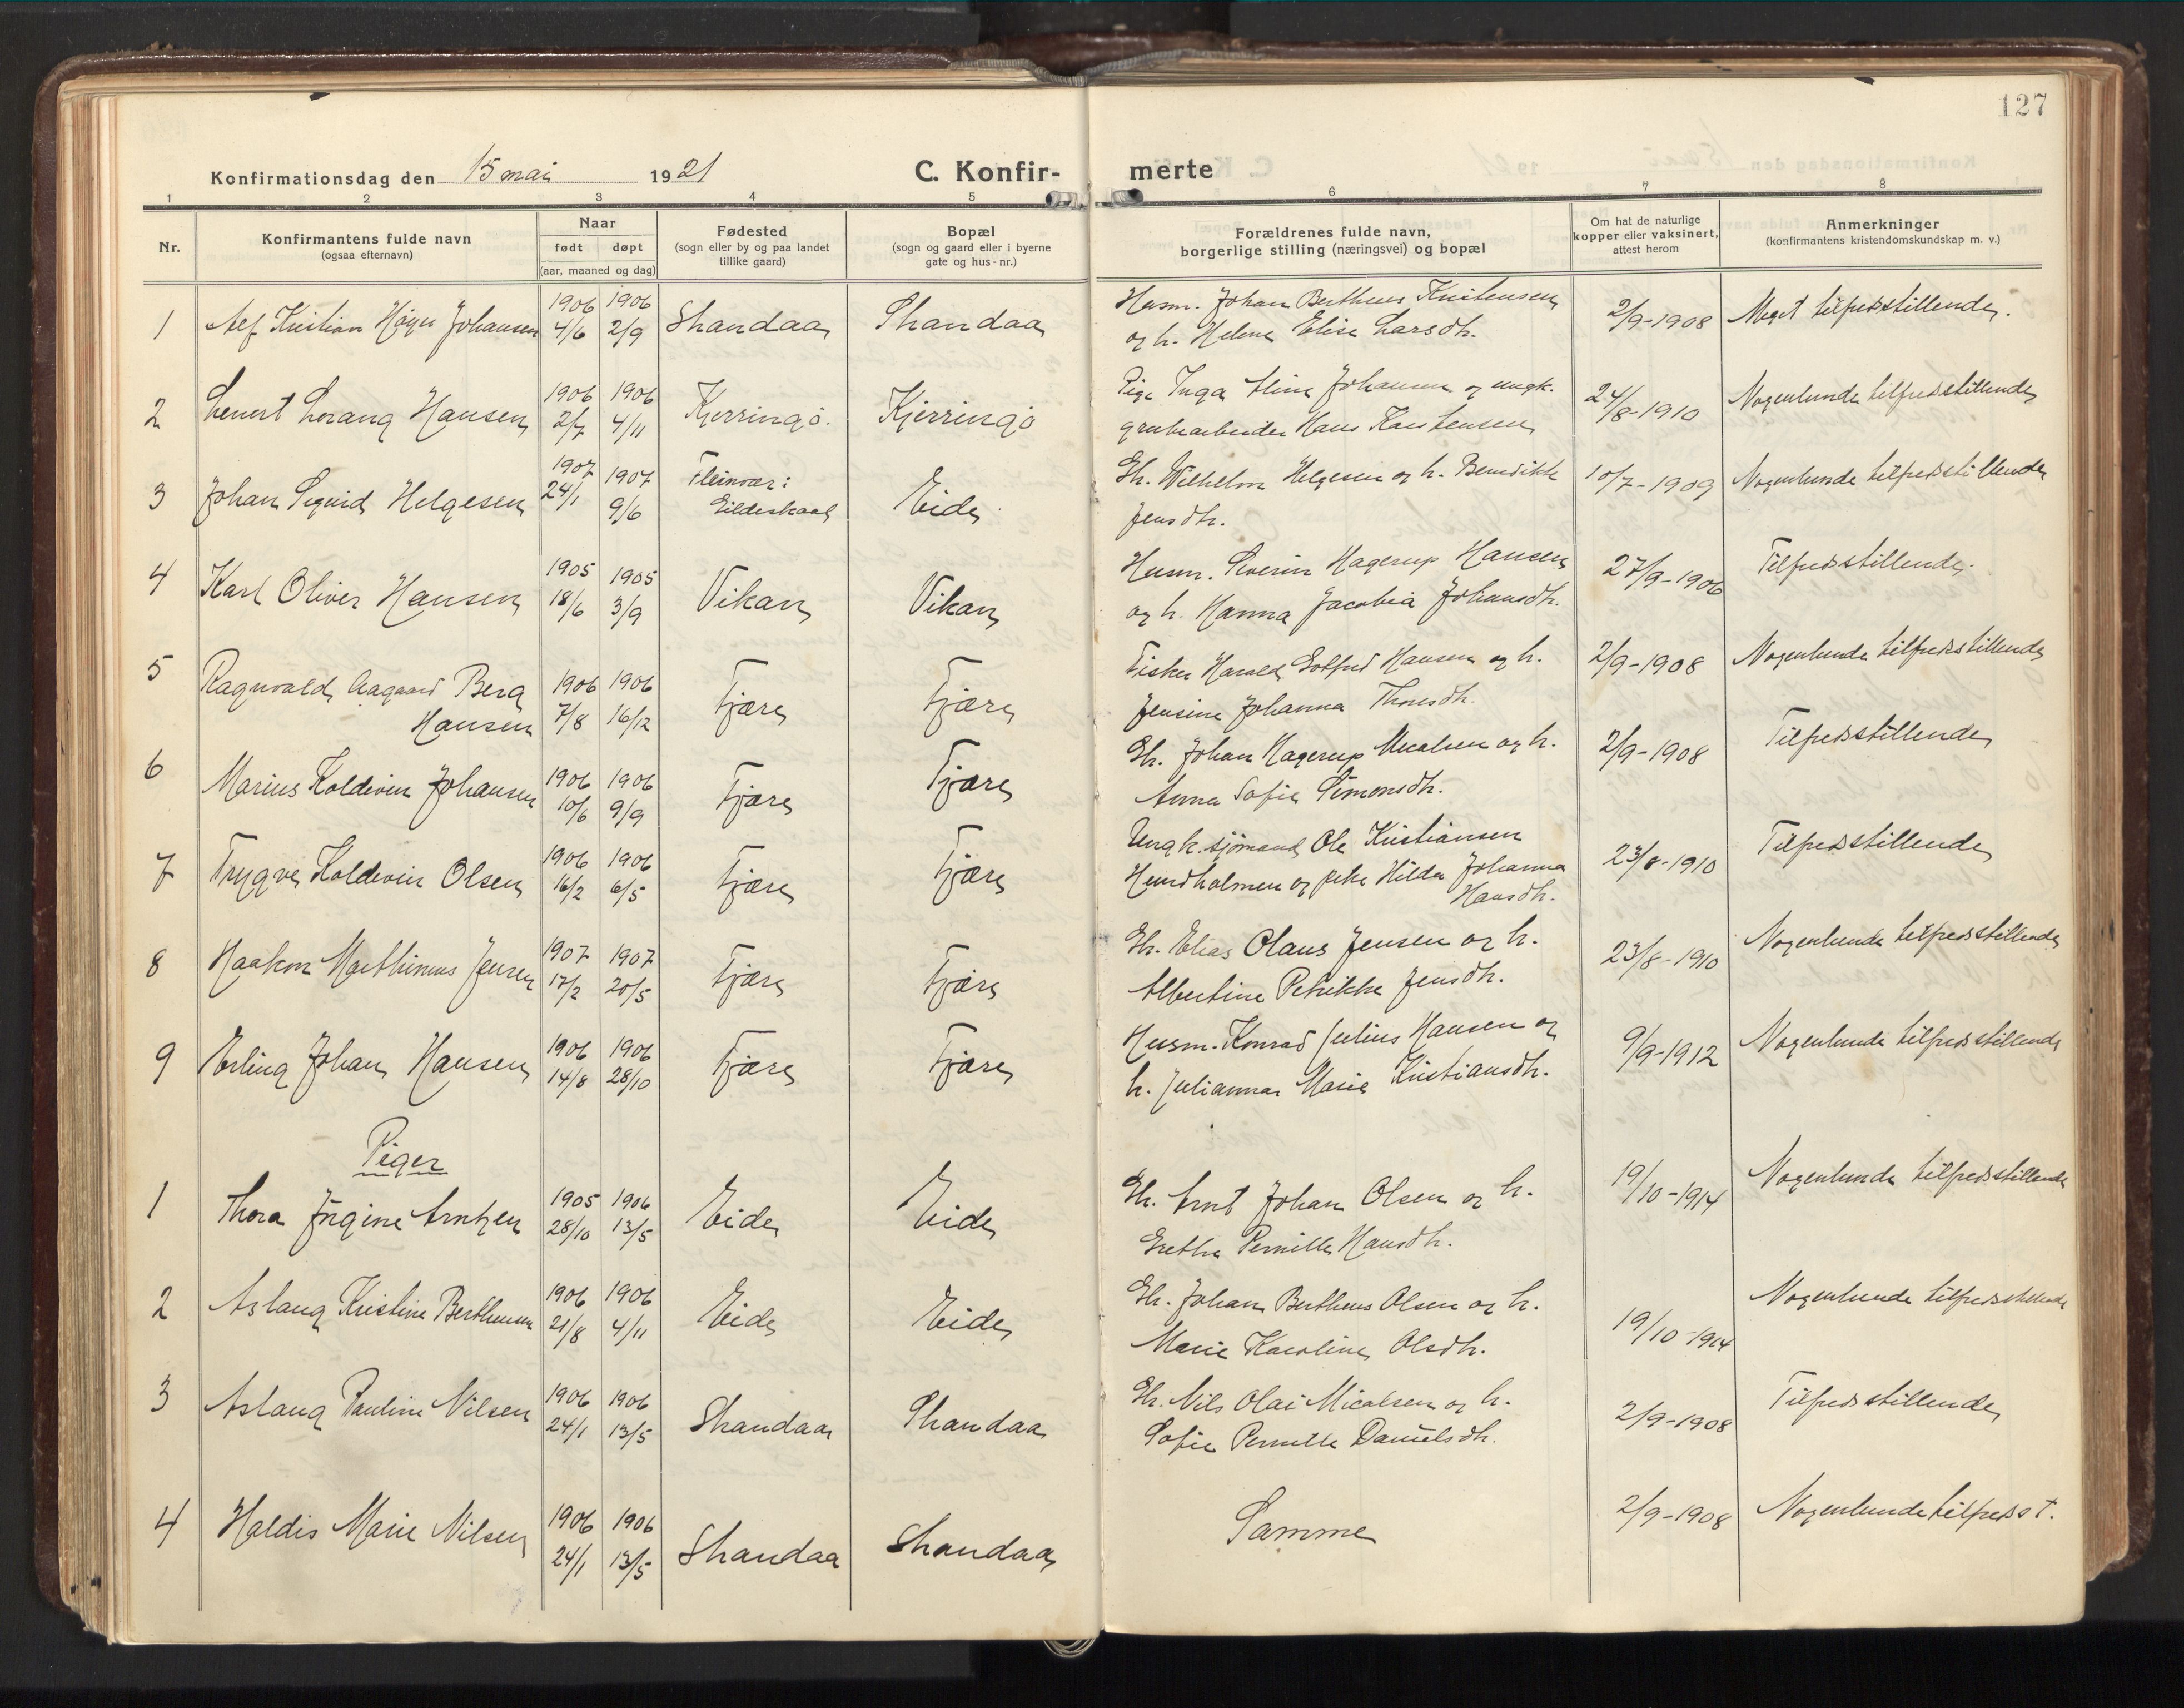 127
Konfirmationsdag den 15 mai 1921
C. Konfir-
merte
1 2 3 4 5 6 7 8
Nr.
Konfirmantens fulde navn
(ogsaa efternavn)
Naar
født døpt
(aar, maaned og dag)
Fødested
(sogn eller by og paa landet
tillike gaard)
Bopæl
(sogn og gaard eller i byerne
gate og hus-nr.)
Forældrenes fulde navn,
borgerlige stilling (næringsvei) og bopæl
Om hat de naturlige
kopper eller vaksinert,
attest herom
Anmerkninger
(konfirmantens kristendomskundskap m. v.)
1 Alf Kristian Høyer Johansen 1906 4/6 1906 2/9 Skandaa Skandaa
Husm. Johan Bertheus Kristensen
og h. Helene Elise Larsdtr.
2/9-1908 Meget tilfredsstillende.
2 Lenert Lorang Hansen 1906 2/7 1906 4/11 Kjerringø. Kjerringø
Pige Inga Aline Johansen og ungk.
grubearbeider Hans Karstensen
24/8-1910 Nogenlunde tilfredsstillende
3 Johan Sigurd Helgesen 1907 24/1 1907 9/6 Fleinvær: Gildeskaal Eide
Gb. Wilhelm Helgesen og h. Benedikte
Jensdtr.
10/7-1909 Nogenlunde tilfredsstillende
4 Karl Oliver Hansen 1905 18/6 1905 3/9 Vikan Vikan
Husm. Severin Hagerup Hansen
og h. Hanna Jacobia Johansdtr.
27/9-1906 Tilfredsstillende.
5 Ragnvald Aagaard Berg
Hansen 1906 7/8 1906 16/12 Fjære Fjære
Fisker Harald Gotfred Hansen og h.
Jensine Johanna Thomsdtr.
2/9-1908 Nogenlunde tilfredsstillende
6 Marius Koldevin Johansen 1906 10/6 1906 9/9 Fjære Fjære
Gb. Johan Hagerup Micalsen og h.
Anna Sofie Simonsdtr.
2/9-1908 Tilfredsstillende
7 Trygve Koldevin Olsen 1906 16/2 1906 6/5 Fjære Fjære
Ungk. sjømand Ole Kristiansen
Hundholmen og pike Hilda Johanna
Hansdtr.
23/8-1910 Tilfredsstillende
8 Haakon Marthinus Jensen 1907 17/2 1907 20/5 Fjære Fjære
Gb. Elias Olaus Jensen og h.
Albertine Petrikke Jensdtr.
23/8-1910 Nogenlunde tilfredsstillende
9 Erling Johan Hansen 1906 14/8 1906 28/10 Fjære Fjære
Husm. Konrad Julius Hansen og
h. Julianna Marie Kristiansdtr.
9/9-1912 Nogenlunde tilfredsstillende
Piger
1 Thora Jrgine Arntzen 1905 28/10 1906 13/5 Eide Eide
Gb. Arnt Johan Olsen og h.
Grethe Pernille Hansdtr.
19/10-1914 Nogenlunde tilfredsstillende
2 Aslaug Kristine Bertheusen 1906 21/8 1906 4/11 Eide Eide
Gb. Johan Bertheus Olsen og h.
Marie Karoline Olsdtr.
19/10-1914 Nogenlunde tilfredsstillende
3 Aslaug Pauline Nilsen 1906 24/1 1906 13/5 Skandaa Skandaa
Gb. Nils Olai Micalsen og h.
Sofie Pernille Danielsdtr.
2/9-1908 Tilfredsstillende
4 Haldis Marie Nilsen 1906 24/1 1906 13/5 Skandaa Skandaa
Samme
2/9-1908 Nogenlunde tilfredsst.